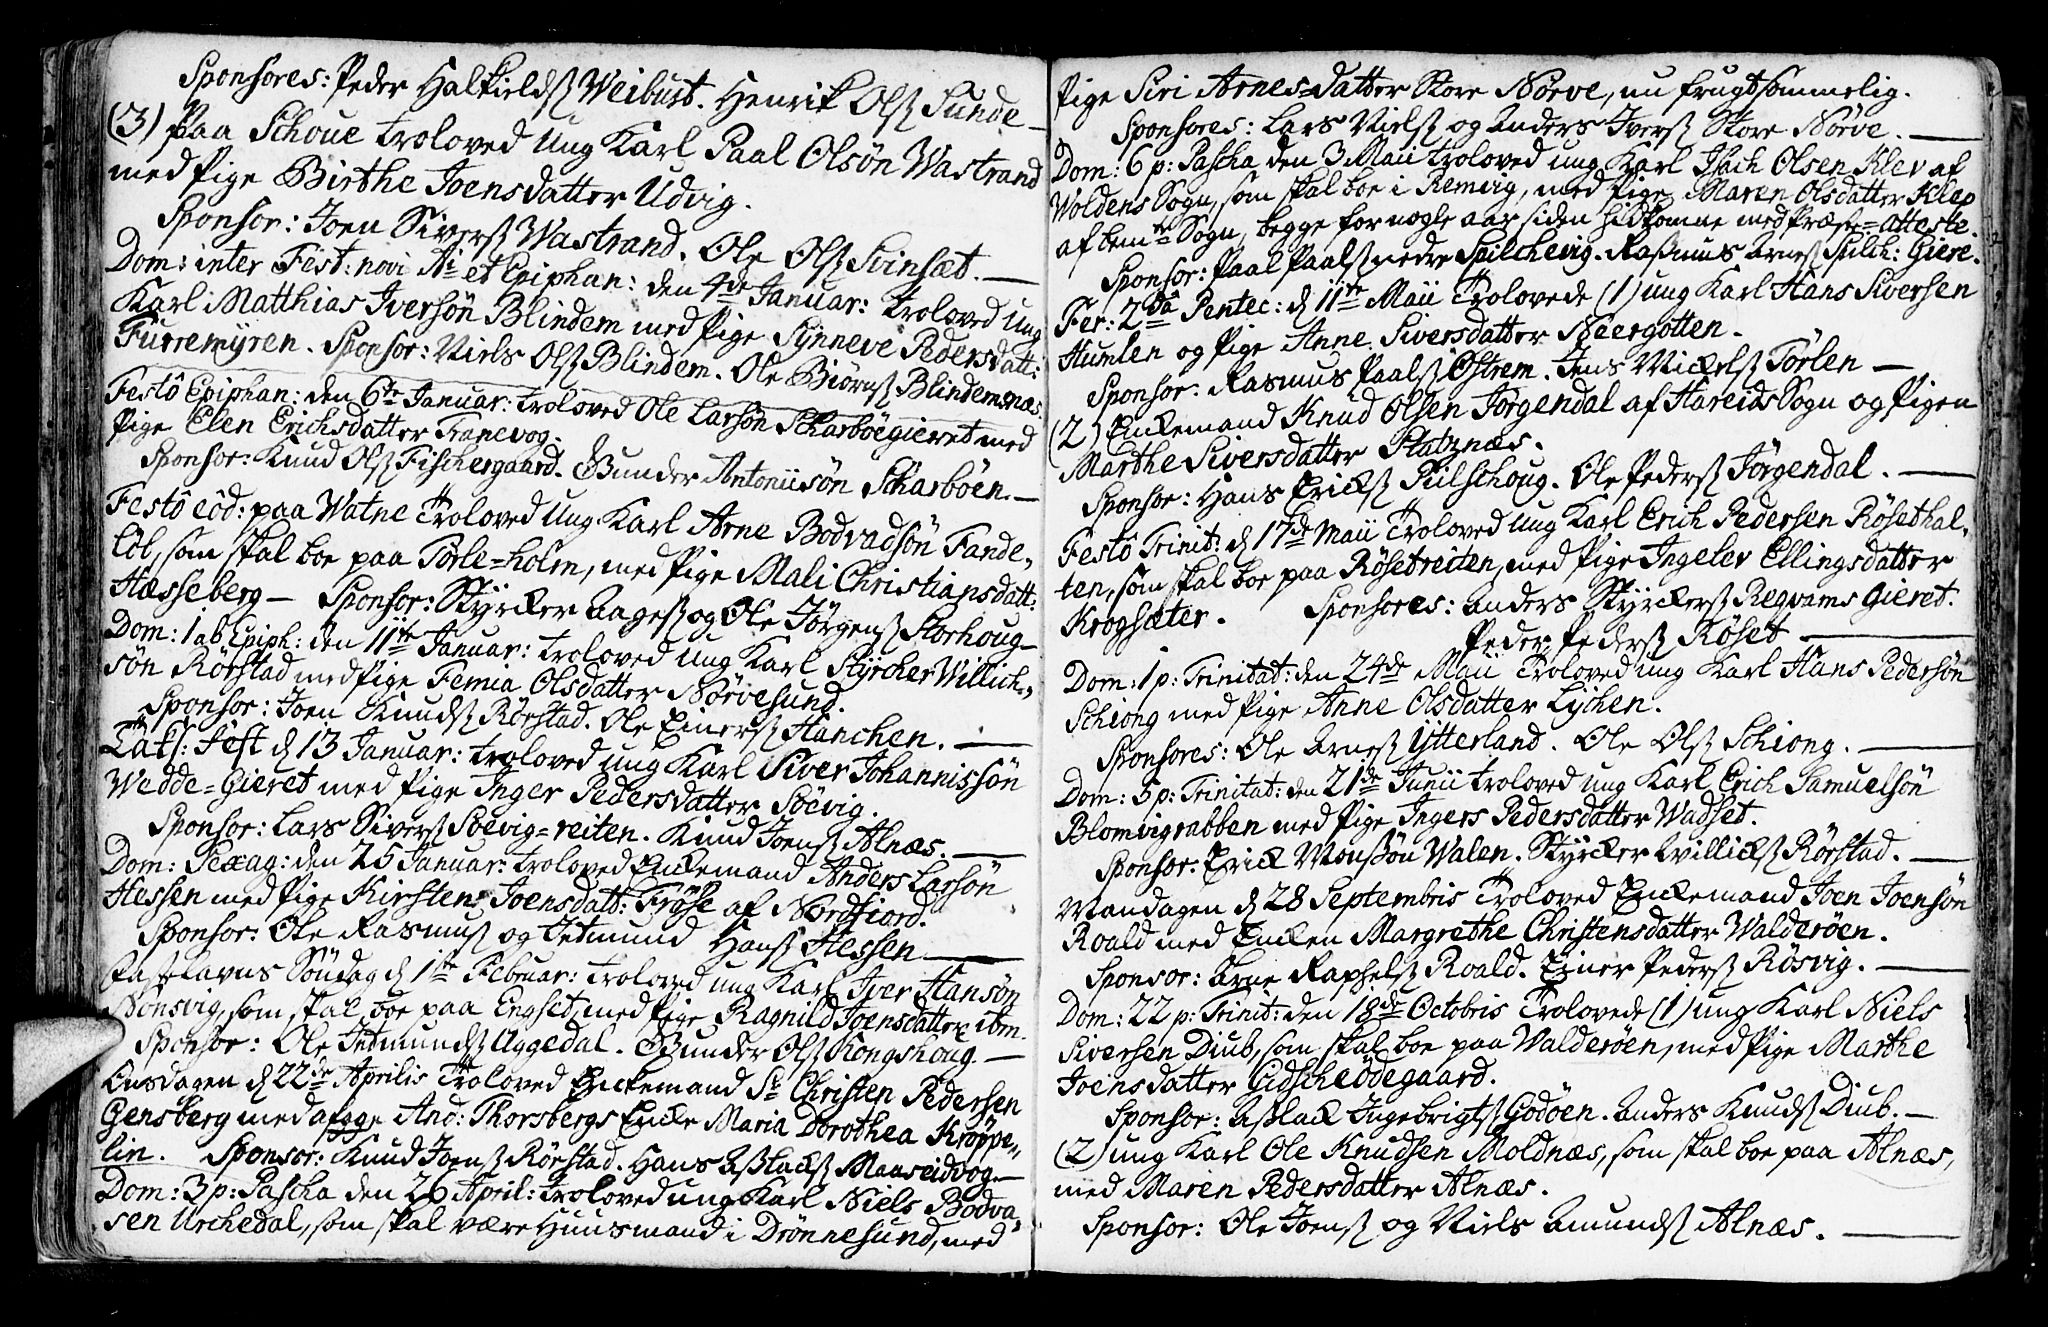 Sponsores: Peder Halkields Weibust. Henrik Ols Sunde —
(3) Paa Schoue troloved ung Karl Paal Olsøn Wastrand
med Pige Birthe Joensdatter Udvig.
Sponsor: Joen Sivers Wastrand. Ole Ols Svinsæt. —
Dom: inter Fest: novi Ai et Epiphan: den 4de Januar: troloved ung
Karl Matthias Iversøn Blindem med Pige Synneve Pedersdatt:
Furremyren. Sponsor: Niels Ols Blindem. Ole Biørns Blindemsnæs.
Festô Epiphan: den 6te Januar: troloved Ole Larsøn Scharbøegieret med
Pige Elen Erichsdatter Tranevog.
Sponsor: Knud Ols Fischergaard. Gunder Antoniisøn Scharbøen. —
Festô eôd: paa Watne Troloved ung Karl Arne Bodvadsøn Fande-
løb, som skal boe paa Torle-holm, med Pige Mali Christiansdatt:
Hæsseberg — Sponsor: Styrcker Aages og Ole Jørgens Storhoug —
Dom: 1 ab Epiph: den 11te Januar: troloved ung Karl Styrcher Willich-
søn Rørstad med Pige Femia Olsdatter Nørvesund.
Sponsor: Joen Knuds Rørstad. Ole Einers Hanchen. —
Takf: Fest d 13 Januar: troloved ung Karl Siver Johannissøn
Wedde-Gieret med Pige Inger Pedersdatter Søevig.
Sponsor: Lars Sivers Søevig-reiten. Knud Joens Alnæs. —
Dom: Sexag: den 25 Januar: troloved Enckemand Anders Larsøn
Hessen med Pige Kirsten Joensdatt: Frøse af Nordfiord.
Sponsor: Ole Rasmus og Jetmund Hans Hessen —
Fastelavns Søndag d 1ste Februar: troloved ung Karl Iver Hansøn
Nonsvig, som skal boe paa Engset, med Pige Ragnild Joensdatter ibm.
Sponsor: Ole Jetmunds Aggedal. Gunder Ols Kongshoug. —
Onsdagen d 22de Aprilis Troloved Enckemand Sr Christen Pedersen
Gensberg med afgge And: Thorsbergs Encke Maria Dorothea Krøpe-
lin. Sponsor: Knud Joens Rørstad. Hans Aslacks Maaseidvog. —
Dom: 3 p: Pascha den 26 April: troloved ung Karl Niels Bodva-
sen Urchedal, som skal være Huusmand i Drønnesund, med
Pige Siri Arnes-datter Store Nørve, nu frugtsommelig.
Sponsores: Lars Niels og Anders Ivers Store Nørve. —
Dom: 6 p: Pascha den 3 Maii troloved ung Karl Isach Olsen Klev af
Woldens Sogn, som skal boe i Remvig, med Pige Maren Olsdatter Klep
af bemte Sogn, begge for nogle aar siden hidkomne med Præste-atteste.
Sponsor: Paal Paals nedre Spilchevig. Rasmus Arnes Spilch: Giere.
Fer: 2da Pentec: d 11te Maii Trolovede (1) ung Karl Hans Siversen
Humlen og Pige Anne Siversdatter Neergotten.
Sponsor: Rasmus Paals Østrem. Jens Mickels Torlen —
(2) Enckemand Knud Olsen Jørgendal af Hareids Sogn og Pigen
Marthe Siversdatter Slatznæs.
Sponsor: Hans Ericks Pilschoug. Ole Peders Jørgendal. —
Festô Trinit: d 17de Maii Troloved ung Karl Erich Pedersen Røsethal-
ten, som skal boe paa Røsetreiten, med Pige Ingelev Ellingsdatter
Krogsæter. Sponsores: Anders Styrckers Regvams Gieret.
Peder Peders Røset —
Dom: 1 p: Trinitat: den 24de Maii Troloved ung Karl Hans Pedersøn
Schiong med Pige Anne Olsdatter Lychen.
Sponsores: Ole Arnes Ytterland. Ole Ols Schiong. —
Dom: 3 p: Trinitat: den 21de Junii troloved ung Karl Erich Samuelsøn
Blomvigrabben med Pige Ingers Pedersdatter Wadset.
Sponsor: Erick Monsøn Walen. Styrcker Willicks Rørstad. —
Mandagen d 28 Septembris Troloved Enckemand Joen Joensøn
Roald med Encken Margrethe Christensdatter Walderøen.
Sponsor: Arne Raphels Roald. Einer Peders Røsvig. —
Dom: 22 p: Trinit: den 18de Octobris Trolovede (1) ung Karl Niels
Siversen Diub, som skal boe paa Walderøen, med Pige Marthe
Joensdatter Gidscheødegaard.
Sponsor: Aslack Ingebrigts Godøen. Anders Knuds Diub. —
(2) ung Karl Ole Knudsen Moldnæs, som skal boe paa Alnæs,
med Maren Pedersdatter Alnæs.
Sponsor: Ole Joens og Niels Amunds Alnæs. —